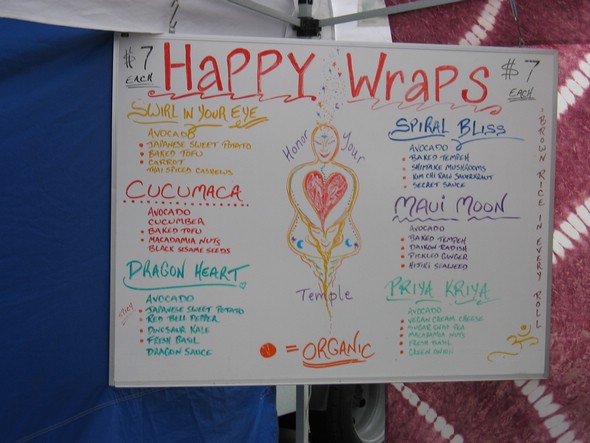 $7 EACH
HAPPY WRAPS
$7 EACH
SWIRL IN YOUR EYE
AVOCADO
JAPANESE SWEET POTATO
BAKED TOFU
CARROT
THAI SPICED CASHEWS
CUCUMACA
AVOCADO
CUCUMBER
BAKED TOFU
MACADAMIA NUTS
BLACK SESAME SEEDS
DRAGON HEART
AVOCADO
JAPANESE SWEET POTATO
RED BELL PEPPER
DINOSAUR KALE
FRESH BASIL
DRAGON SAUCE
Honor Your
Temple
= ORGANIC
SPIRAL BLISS
AVOCADO
BAKED TEMPEH
SHIITAKE MUSHROOMS
KIM CHI RAW SAUERKRAUT
SECRET SAUCE
MAUI MOON
AVOCADO
BAKED TEMPEH
DAIKON RADISH
PICKLED GINGER
HIZIKI SEAWEED
PRIYA KRIYA
AVOCADO
VEGAN CREAM CHEESE
SUGAR SNAP PEA
MACADAMIA NUTS
FRESH BASIL
GREEN ONION
BROWN RICE IN EVERY ROLL
ॐ